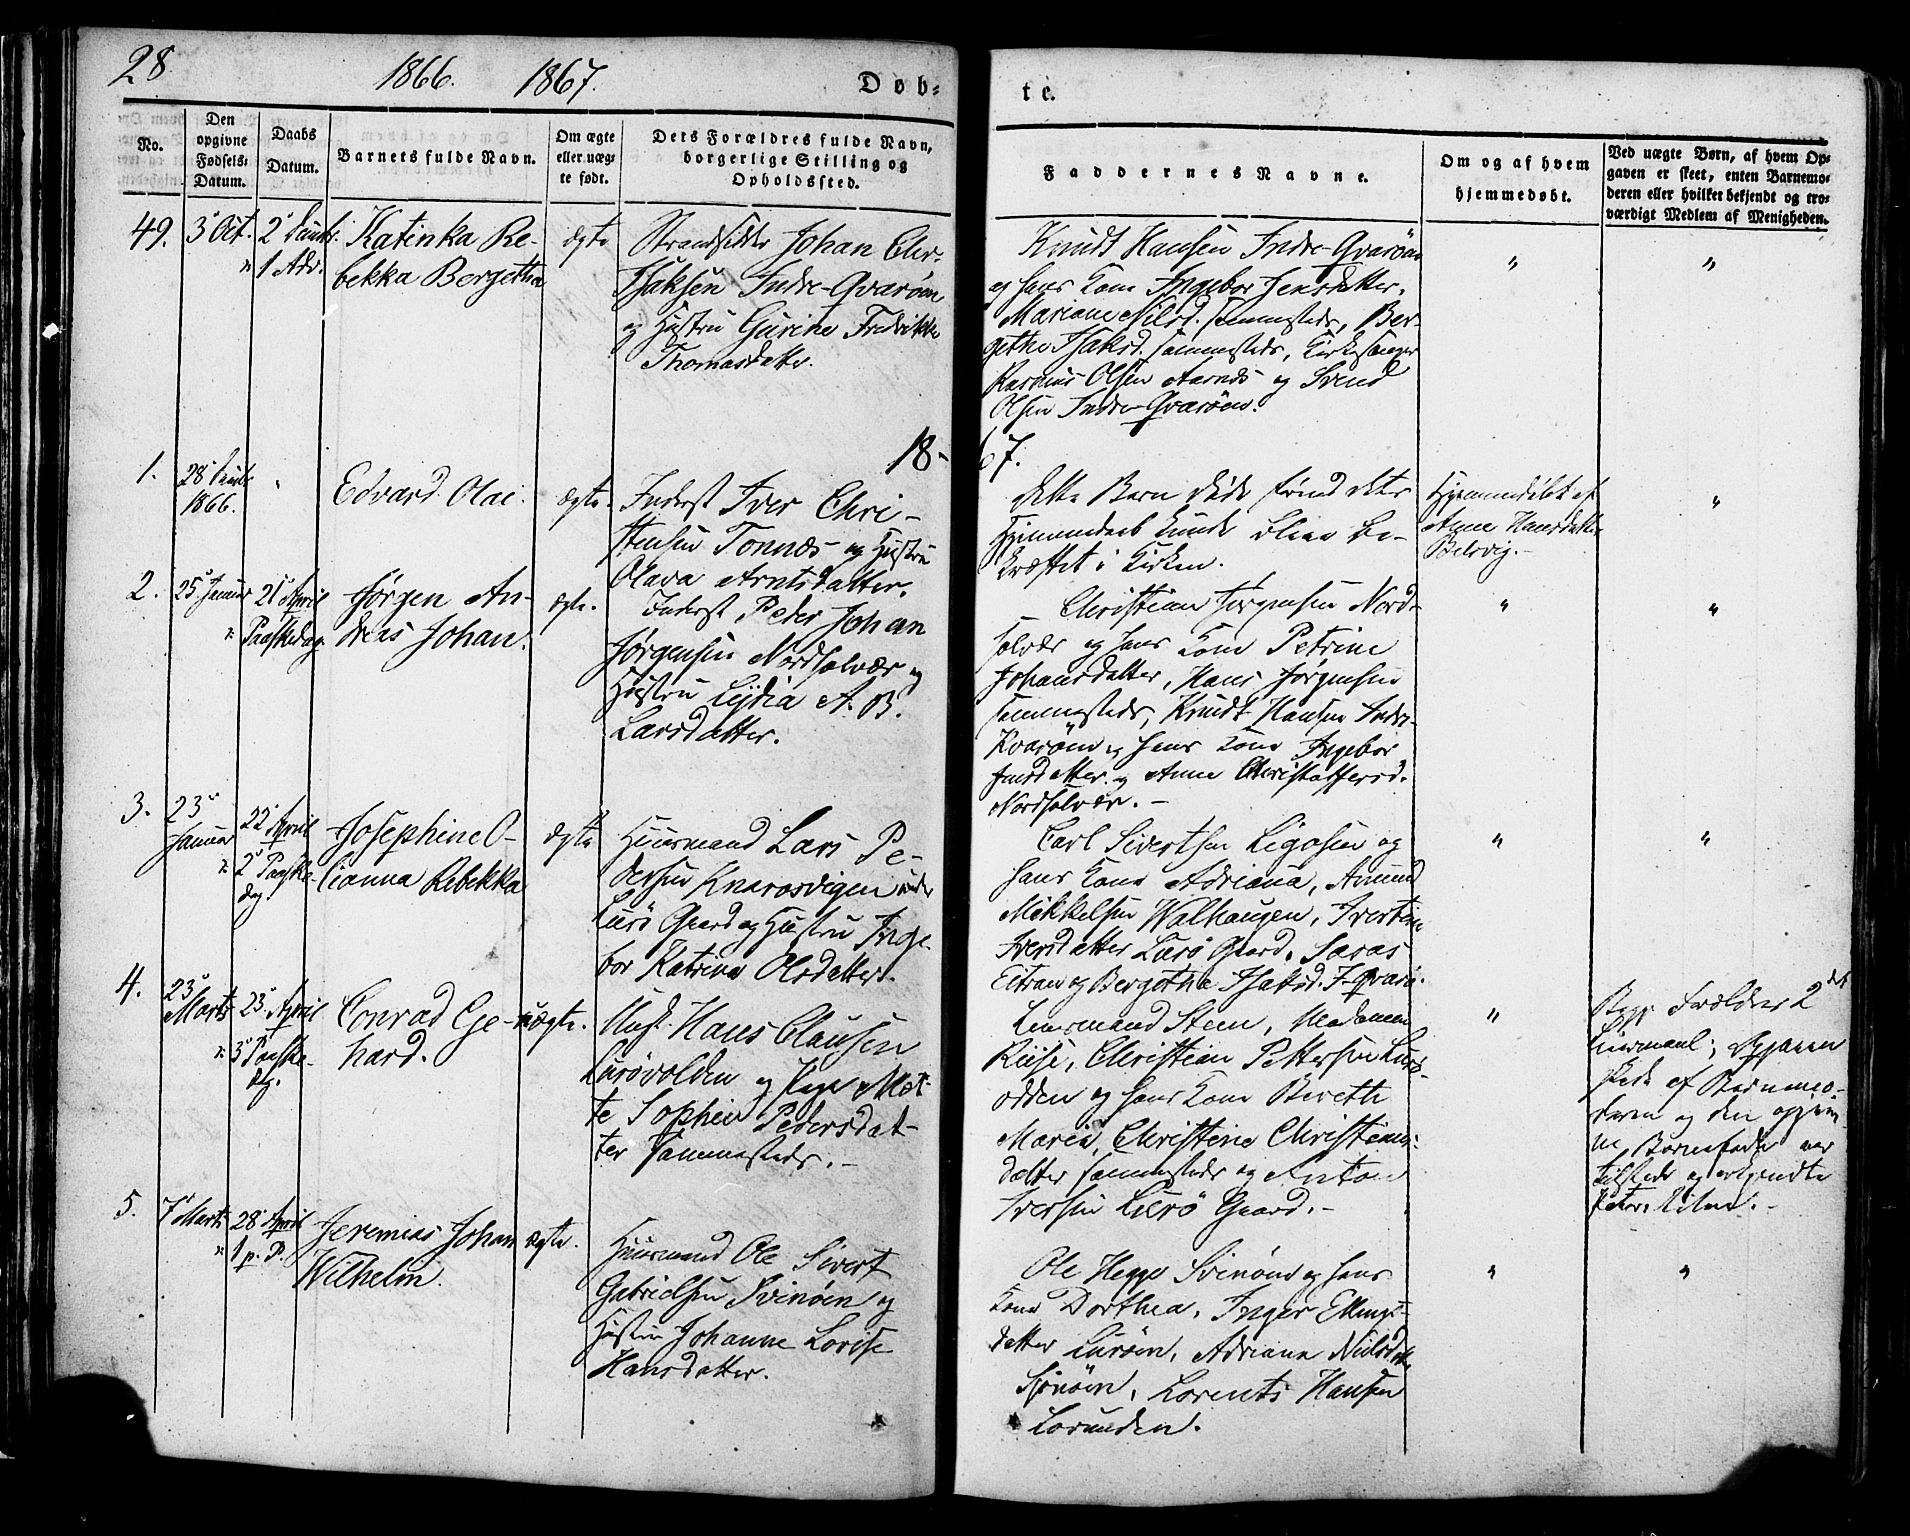 28
1866.
1867.
Døb-
te.
No.
Den
opgivne
Fødsels-
Datum.
Daabs
Datum.
Barnets fulde Navn.
Om ægte
eller uæg-
te født.
Dets Forældres fulde Navn,
borgerlige Stilling og
Opholdssted.
Faddernes Navne.
Om og af hvem
hjemmedøbt.
Ved uægte Børn, af hvem Op-
gaven er skeet, enten Barnemo-
deren eller hvilket bekjendt og tro-
værdigt Medlem af Menigheden.
49.
3 Oct.
1 Adv.
Katinka Re-
bekka Bergetha
ægte
Strandsidder Johan Chr.
Isaksen Indre-Qvarøen
og Hustru Gurine Fredrikke
Thomasdatter.
Knudt Hansen Indre-Qvarøen
og hans Kone Ingebor Jensdatter,
Mariane Nilsd. sammesteds, Ber-
gethe Isaksd. sammesteds, Kirkesanger
Rasmus Olsen Aarnæs og Svend
Olsen Indre-Qvarøen.
"
"
18-
67.
1.
28
1866.
Edvard Olai.
ægte.
Inderst Iver Chri-
stensen Tonnæs og Hustru
Olava Arntsdatter.
Dette Barn døde førend dets
Hjemmedaab kunde blive be-
kræftet i Kirken.
Hjemmedøbt af
Anne Hansdatter
"
2.
25 Januar
21 April
Paaskedag.
Jørgen An-
dreas Johan.
ægte.
Inderst Peder Johan
Jørgensen Nordsolvær og
Hustru Lydia A. B.
Larsdatter.
Christian Jørgensen Nord-
solvær og hans Kone Petrine
Johansdatter, Hans Jørgensen
sammesteds, Knudt Hansen Indre-
Kvarøen og hans Kone Ingebor
Jensdatter og Anne Christoffersd.
Nordsolvær. -
"
"
3.
23
Januar
22 April
2 Paaske-
dag.
Josephine O-
lianna Rebekka
ægte
Huusmand Lars Pe-
dersen Knarosvigen under
Lurø Gaard og Hustru Inge-
bor Katrina Olsdatter.
Carl Sivertsen Ligosen og
hans Kone Adriana, Amund
Mikkelsen Walhaugen, Ivertine
Iversdatter Lurø Gaard,
og Bergetha Isaksd.
"
"
4.
23
Marts
23 April
3 Paaske-
dg.
Conrad Ge-
hard.
uægte.
Ungk. Hans Clausen
Lurøvolden og Pige Met-
te Sophie Pedersdat-
ter sammesteds. -
Lensmand Steen, Madamen
Riise, Christian Pettersen Lurø-
odden og hans Kone Berethe
Maria, Christine Christians-
datter sammesteds og Anton
Iversen Lurø Gaard. -
"
Begge Forældres 2det
Leiermaal; Opgaven
skede af Barnemo-
deren og den opgiv-
ne Barnefader var
tilstede og erkjendte
5.
7 Marts
28 April
1 p. P.
Jeremias Johan
Wilhelm.
ægte.
Huusmand Ole Sivert
Gabrielsen Svinøen og
Hustru Johanne Lovise
Hansdatter.
Ole Hegge Svinøen og hans
Kone Dorthea, Inger Ellings-
datter Lurøen, Adriana Nielsdatter
Svinøen, Lorents Hansen
Lovunden.
"
"